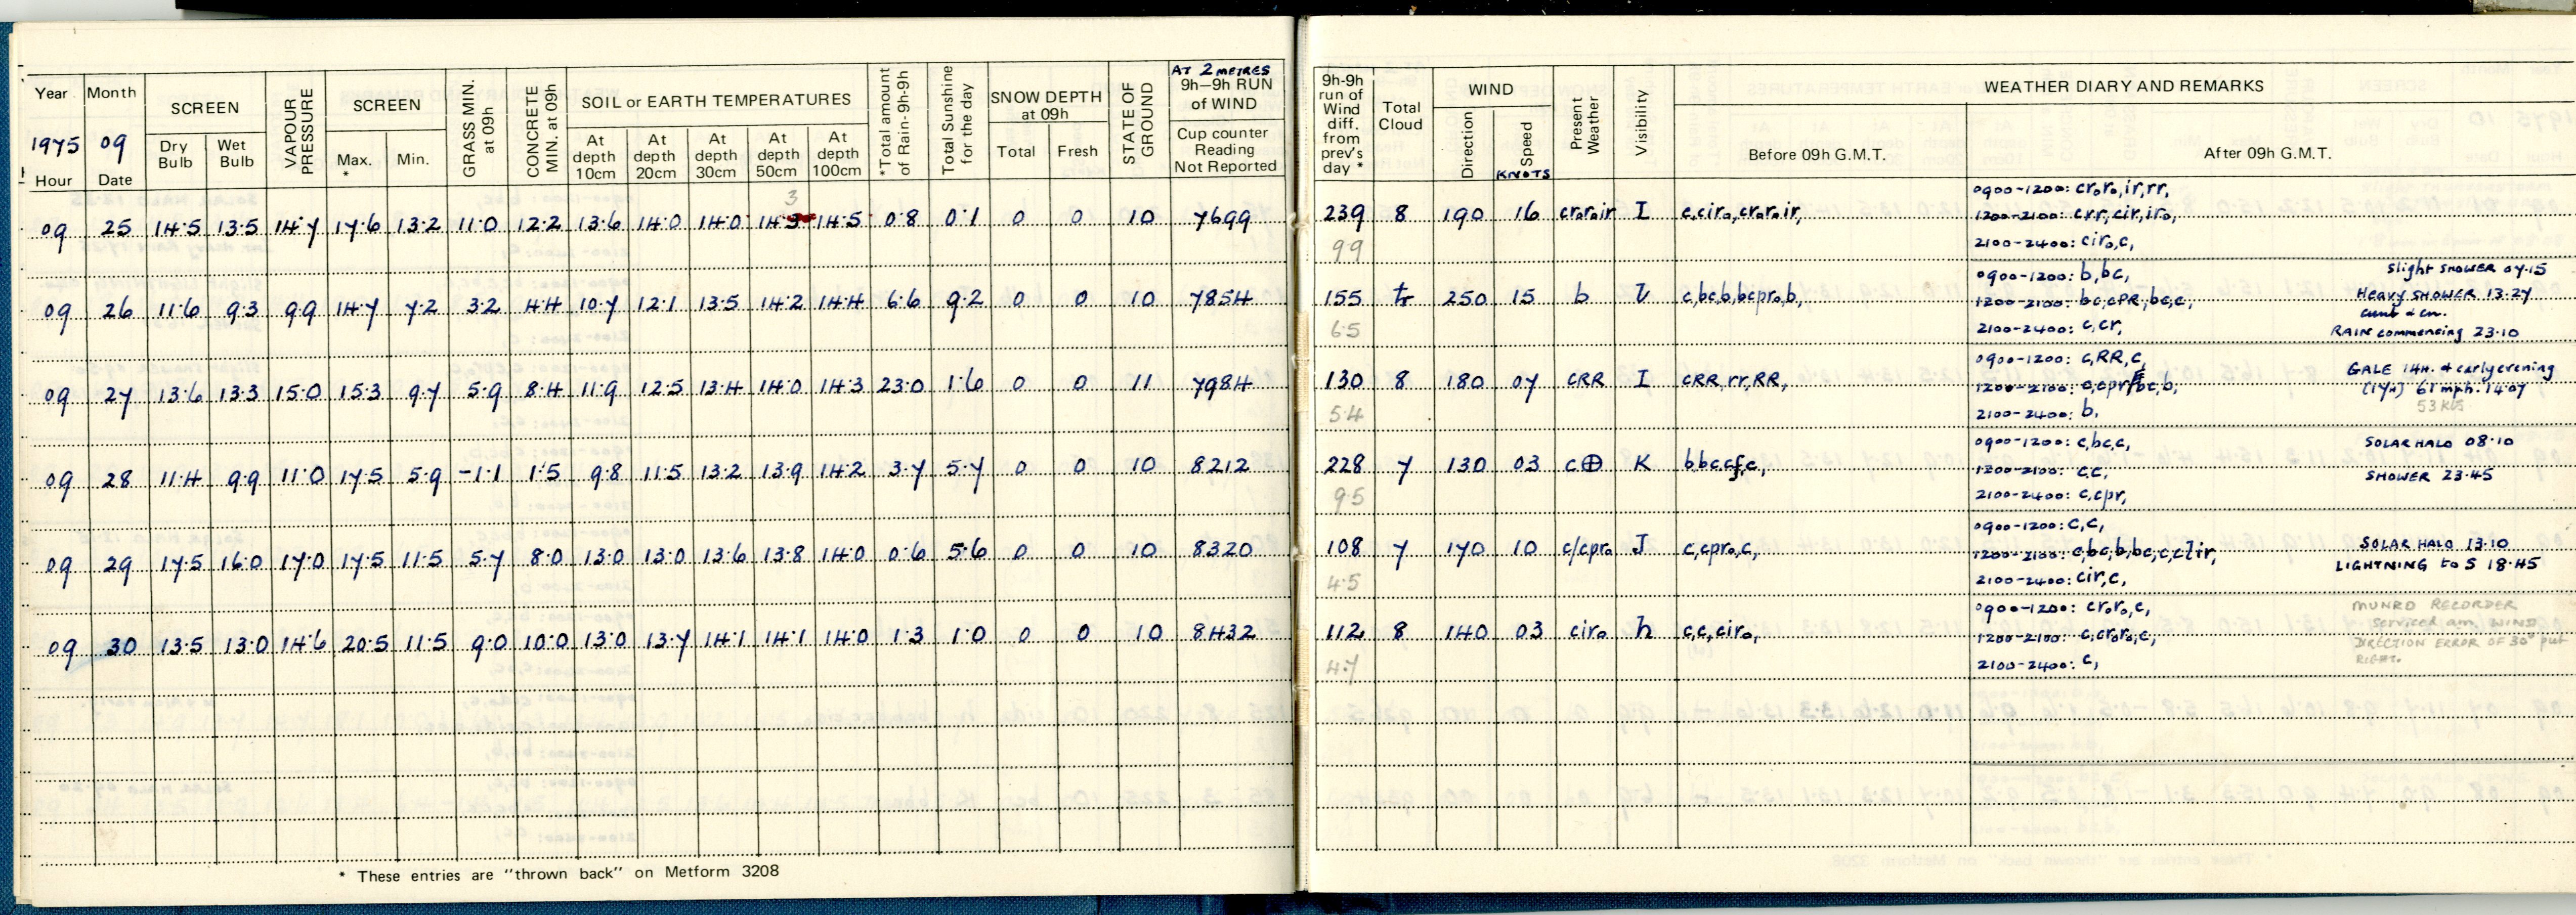 Year Month SCREEN VAPOUR PRESSURE SCREEN GRASS MIN. at 09h CONCRETE MIN. at 09h SOIL or EARTH TEMPERATURES *Total amount of Rain-9h-9h Total Sunshine for the day SNOW DEPTH at 09h STATE OF GROUND AT 2 METRES 9h-9h RUN of WIND
1975 09 Dry Bulb Wet Bulb Max. * Min. At depth 10cm At depth 20cm At depth 30cm At depth 50cm At depth 100cm Total Fresh Cup counter Reading Not Reported
Hour Date
3
09 25 14·5 13·5 14·7 17·6 13·2 11·0 12·2 13·6 14·0 14·0 14·3 14·5 0·8 0·1 0 0 10 7699
09 26 11·6 9·3 9·9 14·7 7·2 3·2 4·4 10·7 12·1 13·5 14·2 14·4 6·6 9·2 0 0 10 7854
09 27 13·6 13·3 15·0 15·3 9·7 5·9 8·4 11·9 12·5 13·4 14·0 14·3 23·0 1·6 0 0 11 7984
09 28 11·4 9·9 11·0 17·5 5·9 -1·1 1·5 9·8 11·5 13·2 13·9 14·2 3·7 5·7 0 0 10 8212
09 29 17·5 16·0 17·0 17·5 11·5 5·7 8·0 13·0 13·0 13·6 13·8 14·0 0·6 5·6 0 0 10 8320
09 30 13·5 13·0 14·6 20·5 11·5 9·0 10·0 13·0 13·7 14·1 14·1 14·0 1·3 1·0 0 0 10 8432
* These entries are "thrown back" on Metform 3208
9h-9h run of Wind diff. from prev's day * Total Cloud WIND Present Weather Visibility WEATHER DIARY AND REMARKS
Direction Speed KNOTS Before 09h G.M.T. After 09h G.M.T.
0900-1200: cr₀r₀,ir,rr,
239 8 190 16 cr₀r₀ir I c,cir₀,cr₀r₀ir, 1200-2100: crr,cir,ir₀,
99 2100-2400: cir₀,c,
0900-1200: b,bc, Slight SHOWER 07·15
155 tr 250 15 b c,bc,b,bcpr₀,b, 1200-2100: bc,cPR,bc,c, Heavy SHOWER 13·27
65 2100-2400: c,cr, RAIN commencing 23·10
0900-1200: c,RR,c, GALE 14H. & early evening
130 8 180 07 cRR I cRR,rr,RR, 1200-2100: (17H) 61 mph. 14·07
54 2100-2400: b, 53 kts
0900-1200: c,bc,c, SOLAR HALO 08·10
228 7 130 03 c⊕ K 1200-2100: c,c, SHOWER 23·45
95 2100-2400: c,cpr,
0900-1200: c,c,
108 7 170 10 c/cpr₀ J c,cpr₀,c, 1200-2100: c,bc,b,bc,c,clir, SOLAR HALO 13·10
45 2100-2400: cir,c, LIGHTNING to S 18·45
0900-1200: cr₀r₀,c, MUNRO RECORDER
112 8 140 03 cir₀ h c,c,cir₀, 1200-2100: c,cr₀r₀,c, serviced a.m. WIND
47 2100-2400: c, DIRECTION ERROR OF 30° put
RIGHT.